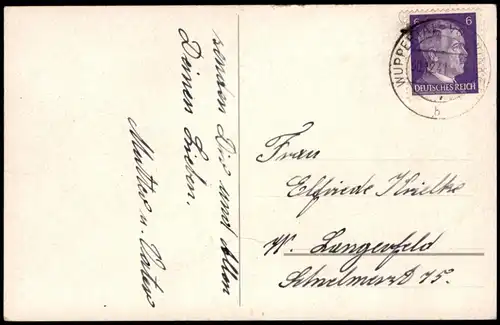 senden Dir und allen
Deinen Lieben.
Mutter u. Vater
6 6
DEUTSCHES REICH
WUPPERTAL
b
Frau
Elfriede Krielke
W. Langerfeld
Schwelmerst 75.